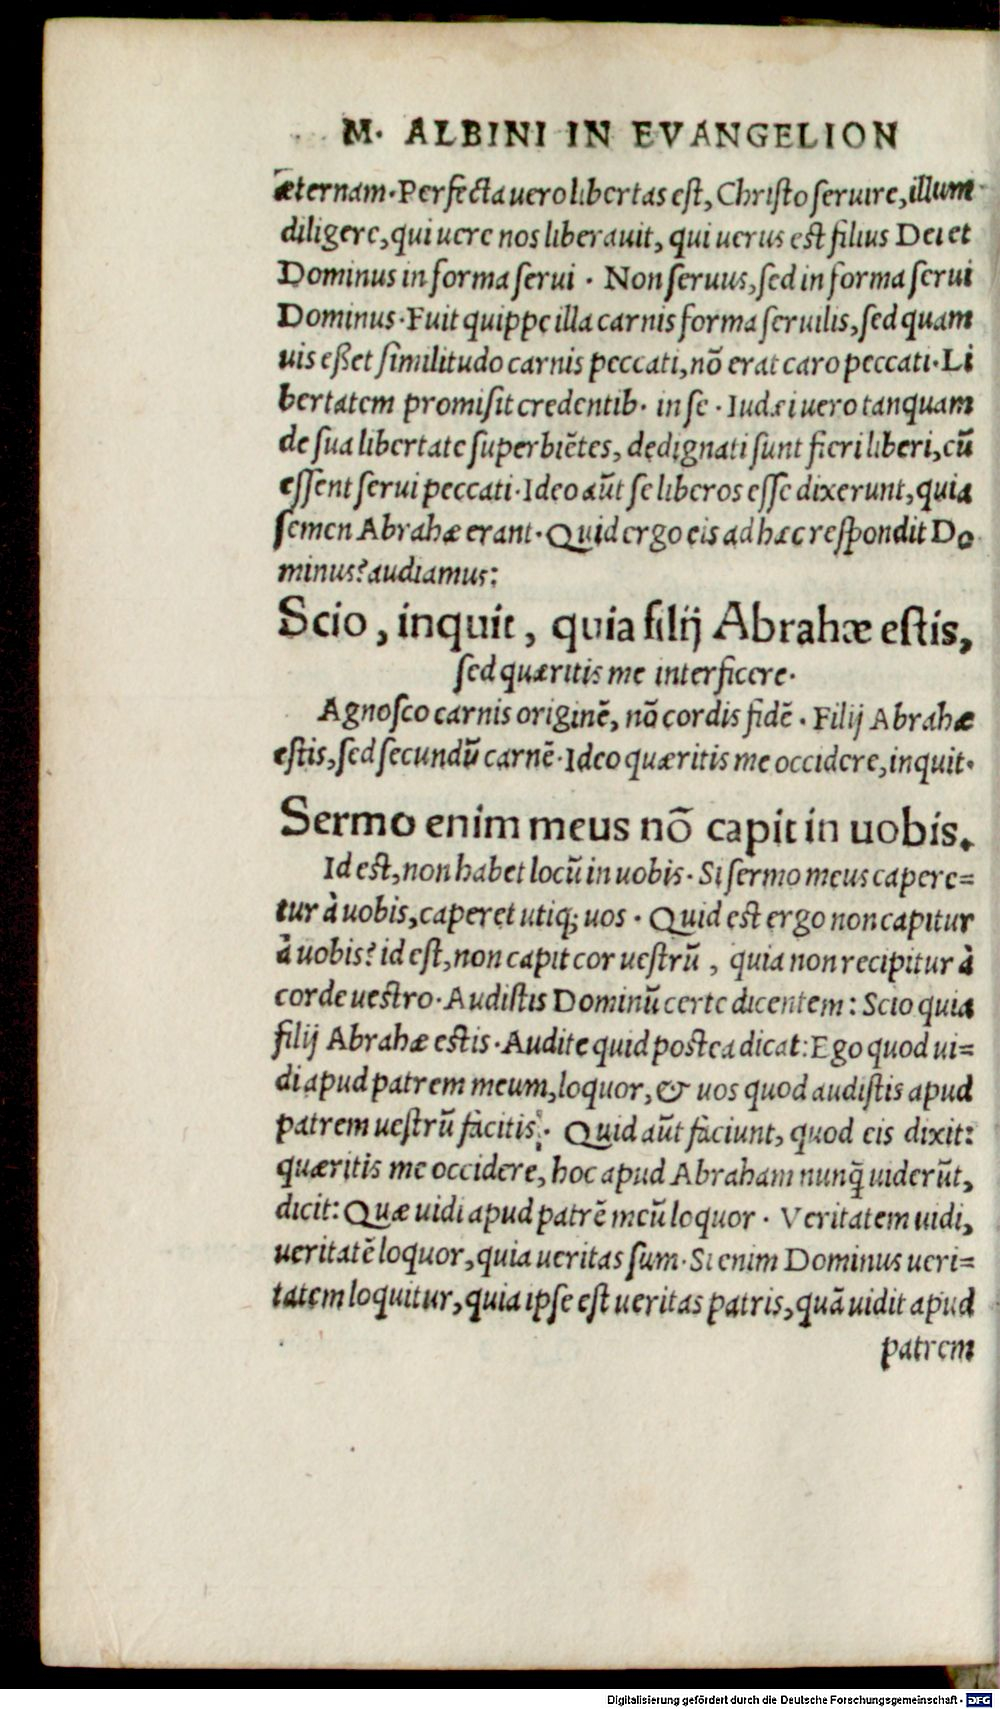 M. ALBINI IN EVANGELION
æternam. Perfecta uero libertas est, Christo seruire, illum
diligere, qui uere nos liberauit, qui uerus est filius Dei et
Dominus in forma serui. Non seruus, sed in forma serui
Dominus. Fuit quippe illa carnis forma seruilis, sed quam
uis eßet similitudo carnis peccati, nō erat caro peccati. Li
bertatem promisit credentib. in se. Iudæi uero tanquam
de sua libertate superbiētes, dedignati sunt fieri liberi, cū
essent serui peccati. Ideo aūt se liberos esse dixerunt, quia
semen Abrahæ erant. Quid ergo eis ad hæc respondit Do
minus? audiamus:
Scio, inquit, quia filij Abrahæ estis,
sed quæritis me interficere.
Agnosco carnis originē, nō cordis fidē. Filij Abrahæ
estis, sed secundū carnē. Ideo quæritis me occidere, inquit.
Sermo enim meus nō capit in uobis.
Id est, non habet locū in uobis. Si sermo meus capere=
tur à uobis, caperet utiq; uos. Quid est ergo non capitur
à uobis? id est, non capit cor uestrū, quia non recipitur à
corde uestro. Audistis Dominū certe dicentem: Scio quia
filij Abrahæ estis. Audite quid postea dicat: Ego quod ui=
di apud patrem meum, loquor, & uos quod audistis apud
patrem uestrū facitis. Quid aūt faciunt, quod eis dixit:
quæritis me occidere, hoc apud Abraham nunq̄ uiderūt,
dicit: Quæ uidi apud patrē meū loquor. Veritatem uidi,
ueritatē loquor, quia ueritas sum. Si enim Dominus ueri=
tatem loquitur, quia ipse est ueritas patris, quā uidit apud
patrem
Digitalisierung gefördert durch die Deutsche Forschungsgemeinschaft - DFG